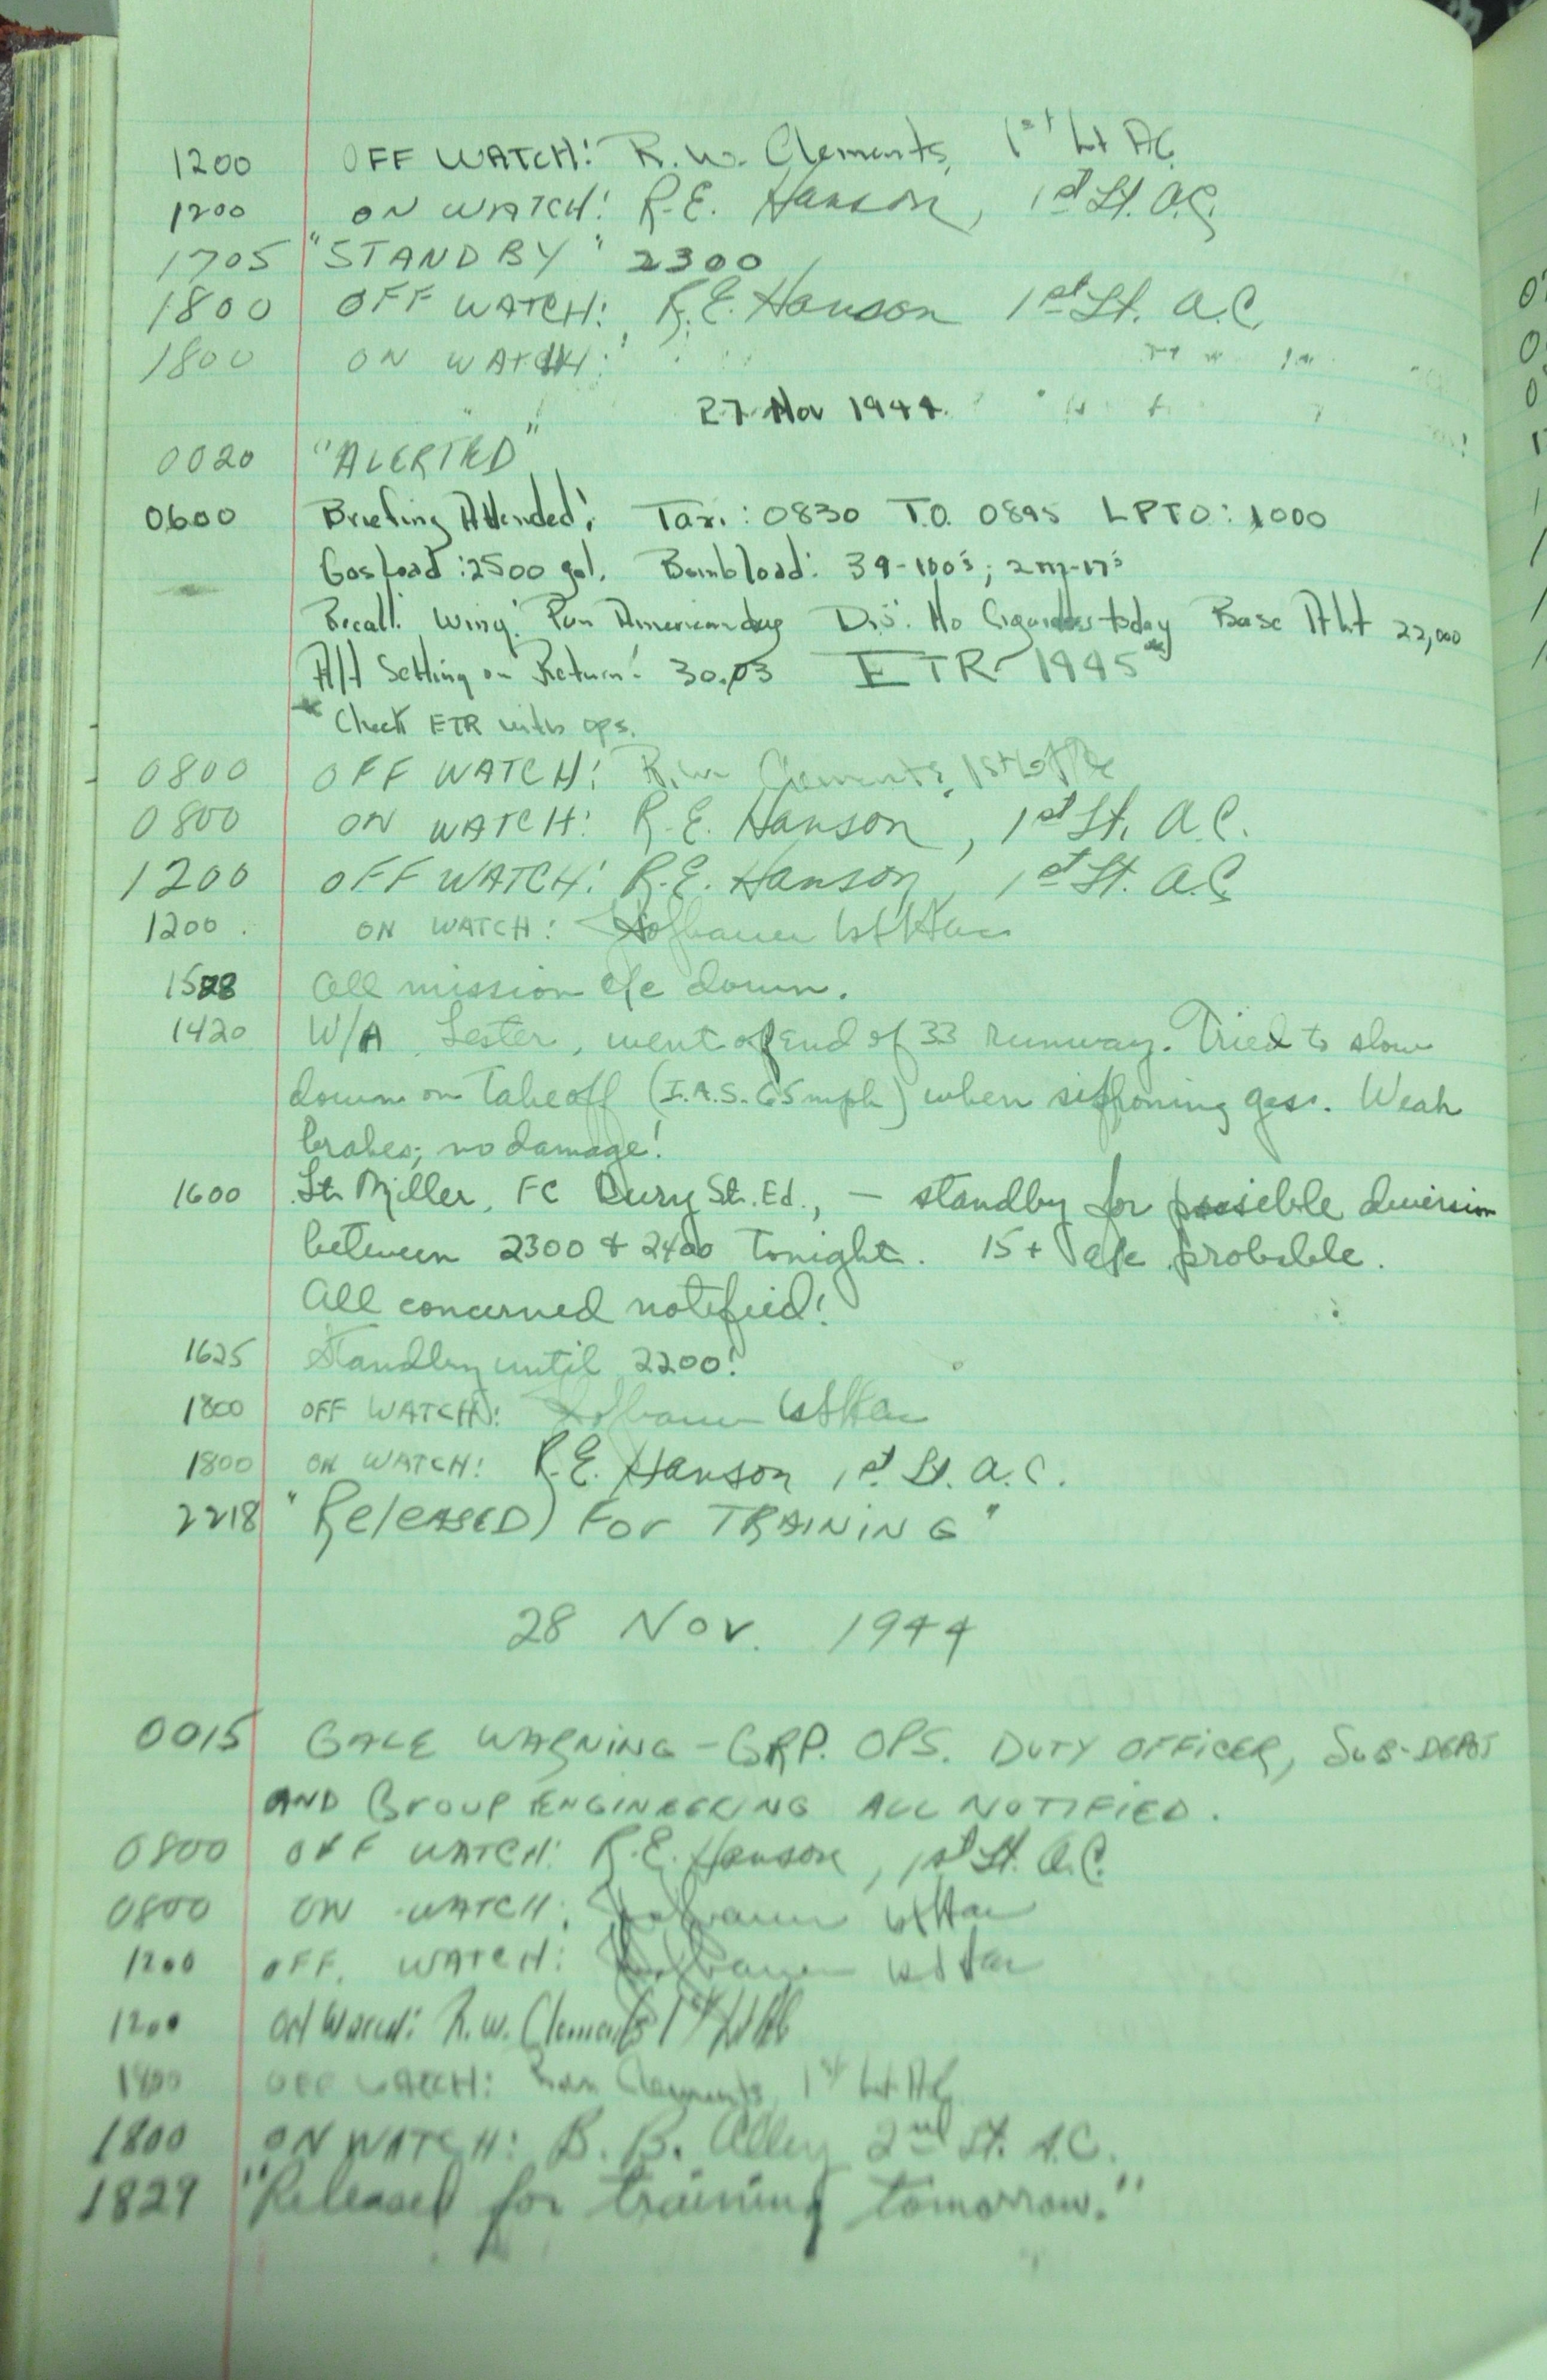 1200 OFF WATCH: R.W. Clements, 1st Lt AC.
1200 ON WATCH: R.E. Hanson, 1st Lt. A.C.
1705 "STAND BY" 2300
1800 OFF WATCH: R.E. Hanson 1st Lt. A.C.
1800 ON WATCH:
27 Nov 1944.
0020 "ALERTED"
0600 Briefing Attended: Taxi: 0830 T.O. 0845 LPTO: 1000
Gas Load: 2500 gal. Bombload: 39-100's; 2 M-17's
Recall: Wing: Pan American day Div: No Cigarettes today Base Alt 22,000
Alt Setting on Return: 30.03 ETR 1445*
* Check ETR with ops.
0800 OFF WATCH: R.W. Clements, 1st Lt AC
0800 ON WATCH: R.E. Hanson, 1st Lt. A.C.
1200 OFF WATCH: R.E. Hanson, 1st Lt. A.C.
1200 ON WATCH: Hofbauer 1st Lt ac
1528 All mission a/c down.
1420 W/A, Lester, went off end of 33 runway. Tried to slow
down on takeoff (I.A.S. 65 mph) when siphoning gas. Weak
brakes; no damage!
1600 Lt. Miller, FC Bury St. Ed., - standby for possible diversion
between 2300 & 2400 tonight. 15+ a/c probable.
All concerned notified!
1625 Standby until 2200!
1800 OFF WATCH: Hofbauer 1st Lt ac
1800 ON WATCH: R.E. Hanson 1st Lt. A.C.
2218 "ReleASED) For TRAINING"
28 Nov. 1944
0015 GALE WARNING - GRP. OPS. DUTY OFFICER, SUB-DEPOT
AND GROUP ENGINEERING ALL NOTIFIED.
0800 OFF WATCH: R.E. Hanson, 1st Lt. A.C.
0800 ON WATCH: Hofbauer 1st Lt ac
1200 OFF. WATCH: Hofbauer 1st Lt ac
1200 ON WATCH: R.W. Clements 1st Lt AC
1800 OFF WATCH: R.W. Clements, 1st Lt AC
1800 ON WATCH: B. B. Alley 2nd Lt. A.C.
1829 "Released for training tomorrow."